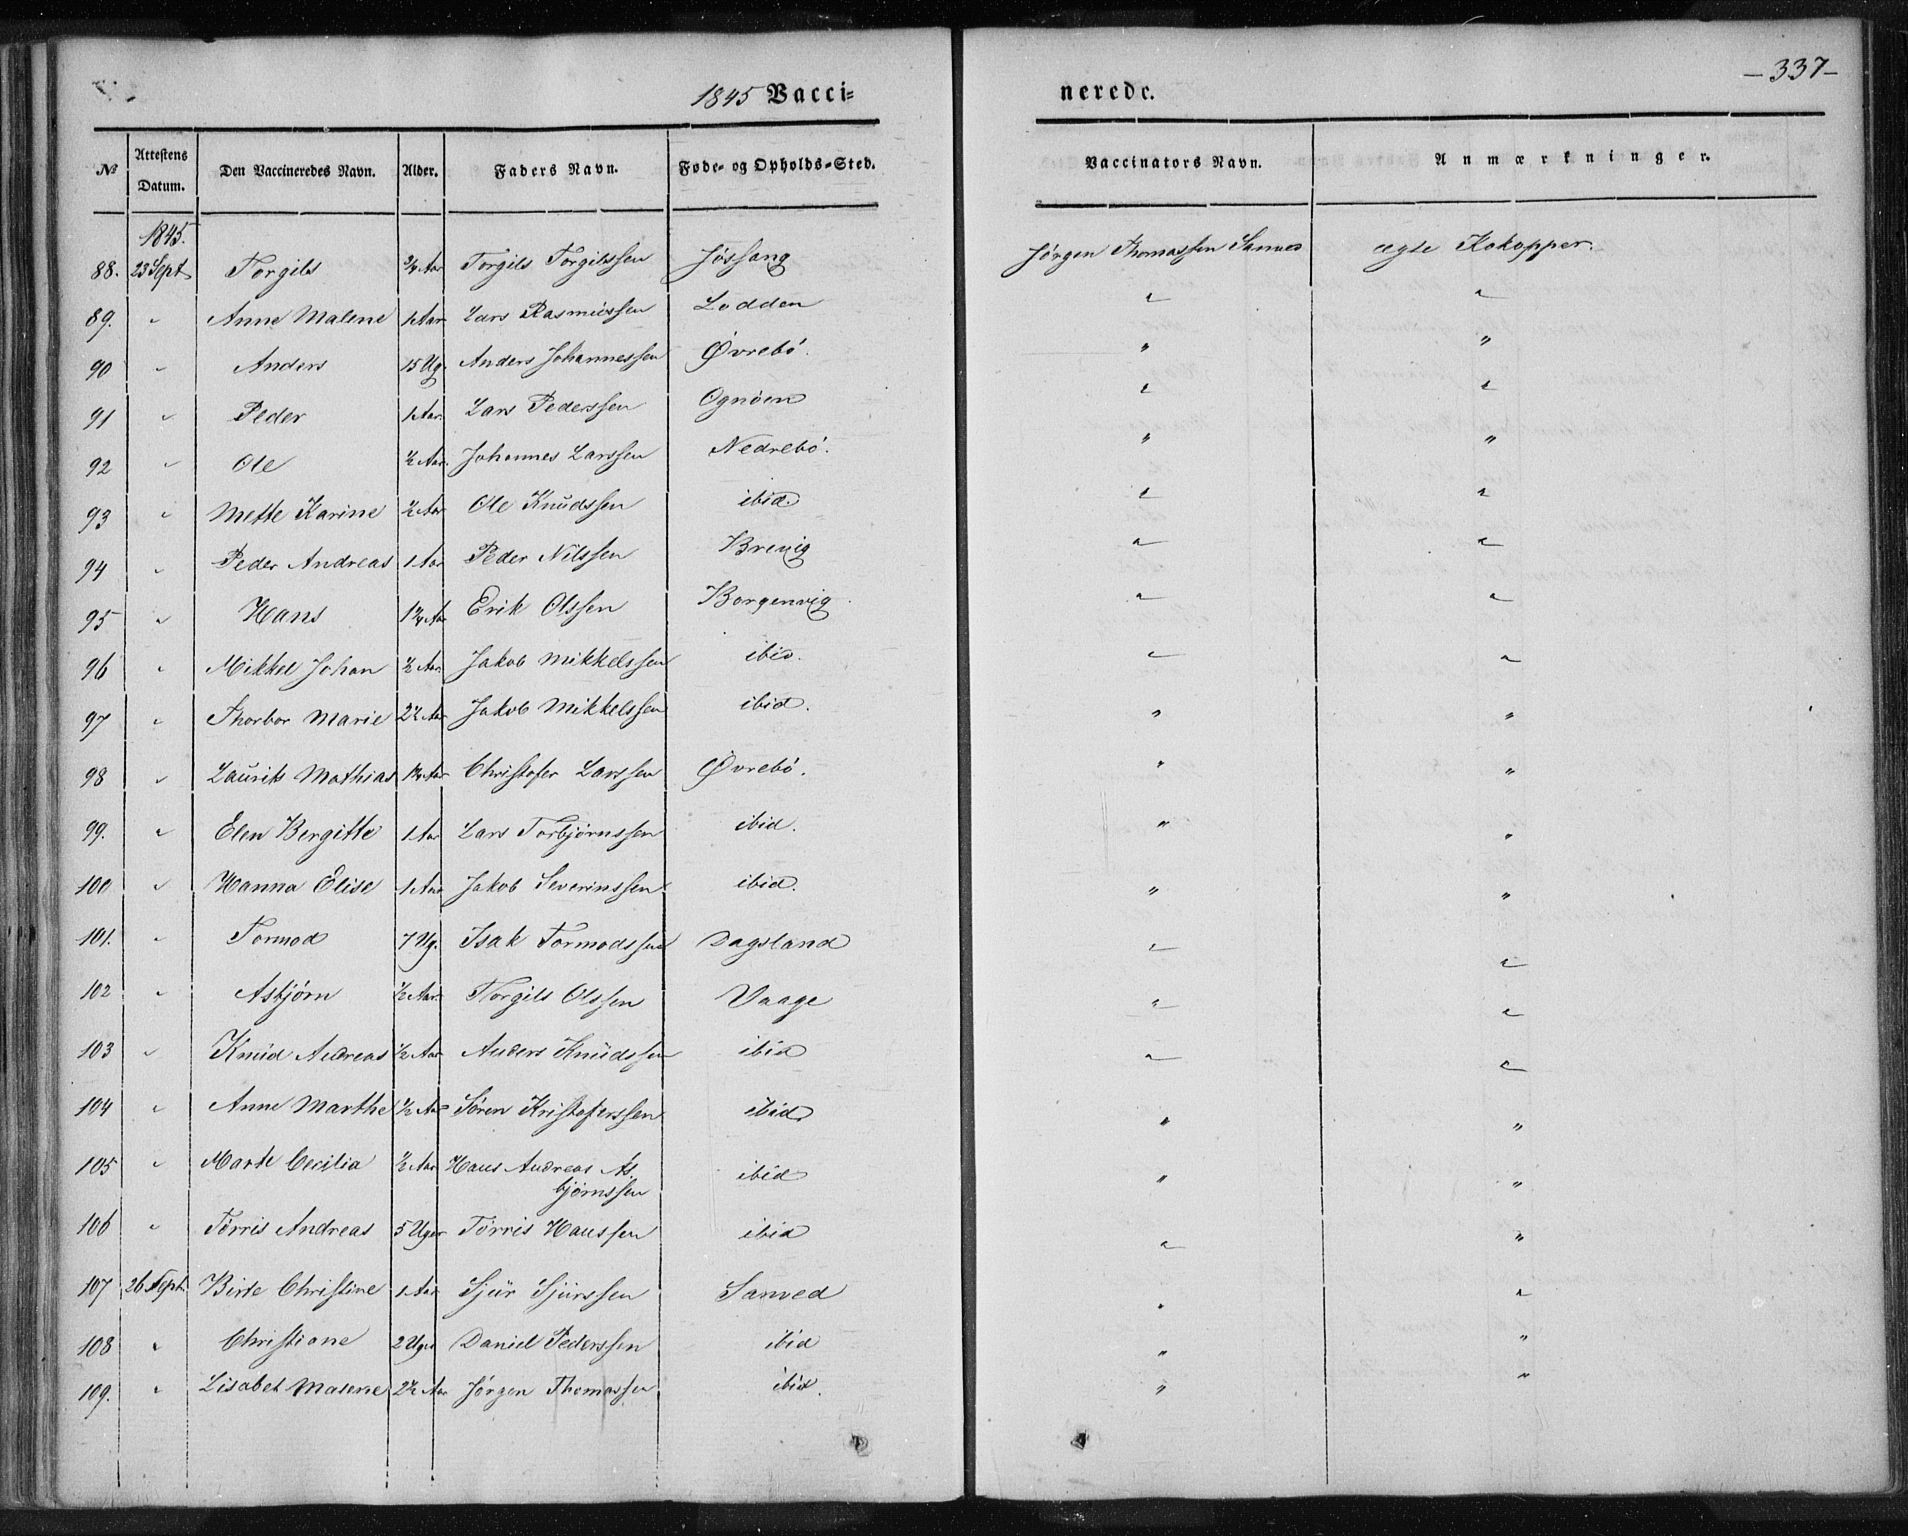 1845 Vacci=
nerede.
— 337 —
№ Attestens Datum. Den Vaccineredes Navn. Alder. Faders Navn. Føde- og Opholds-Sted. Vaccinators Navn. Anmærkninger.
1845.
88. 23 Sept Torgils ¾ Aar Torgils Torgilssen Jøssang Jørgen Thomassen Sanved ægte Kokopper.
89. " Anne Malene 1 Aar Lars Rasmussen Lodden " "
90 " Anders 15 Ug. Anders Johannessen Øvrebö. " "
91 " Peder 1 Aar. Lars Pederssen Ognöen " "
92 " Ole ½ Aar. Johannes Larssen Nedrebö. " "
93 " Mette Karine ½ Aar Ole Knudssen ibid. " "
94 " Peder Andreas 1 Aar Peder Nilssen Brevig " "
95 " Hans 1¼ Aar Erik Olssen Borgenvig " "
96 " Mikkel Johan ½ Aar. Jakob Mikkelssen ibid. " "
97 " Thorbor Marie 2½ Aar Jakob Mikkelssen ibid. " "
98 " Laurits Mathias 1¼ Aar Christofer Larssen Øvrebö. " "
99. " Elen Bergitte 1 Aar Lars Torbjørnssen ibid. " "
100 " Hanna Elise 1 Aar Jakob Severinssen ibid. " "
101. " Tormod 7 Ug. Isak Tormodssen Dagsland " "
102 " Asbjørn ½ Aar. Torgils Olssen Vaage " "
103 " Knud Andreas ½ Aar Anders Knudssen ibid " "
104 " Anne Marthe ½ Aar Sören Kristoferssen ibid. " "
105 " Marte Cecilia ½ Aar Hans Andreas As
bjørnssen ibid " "
106 " Tørris Andreas 5 Uger Tørris Hanssen ibid " "
107 26 Sept. Birte Christine 1 Aar Sjur Sjurssen Sanved " "
108 " Christiane 2 Uger Daniel Pederssen ibid " "
109. " Lisabet Malene 2½ Aar Jörgen Thomassen ibid. " "